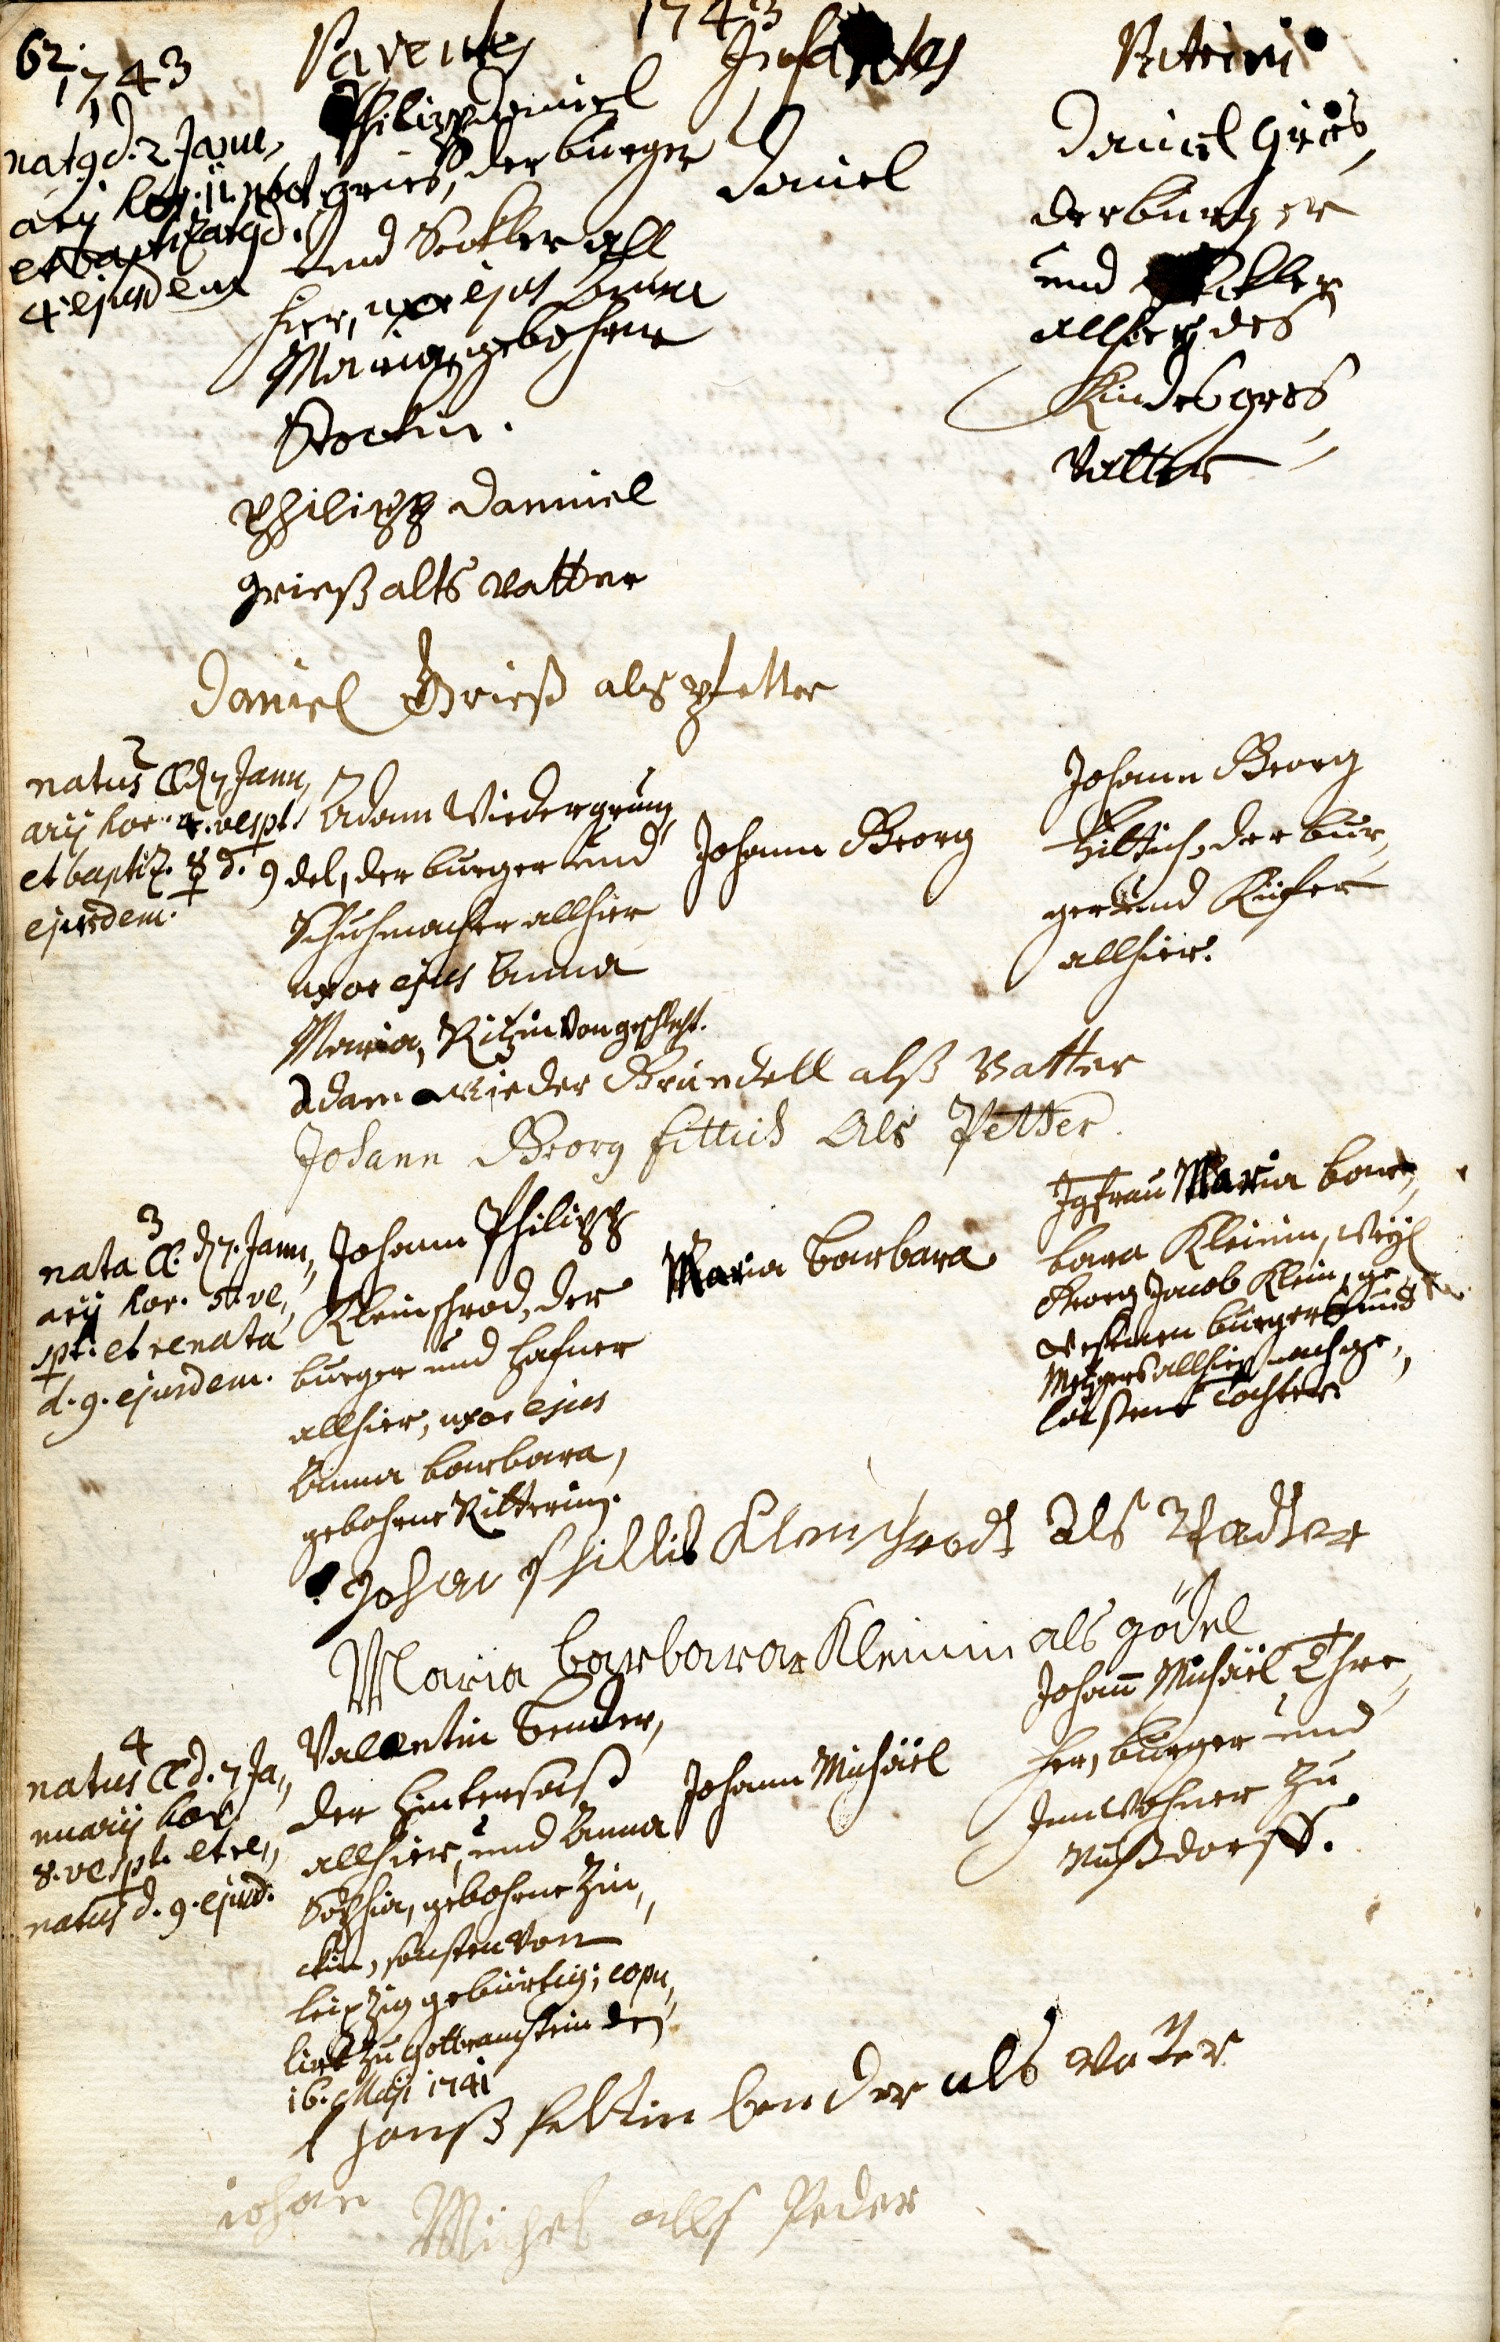 62.
1743
1743
Parentes
Infantes
Patrini
1
nat9 d. 2 Janu,
arij hor: 11. noct
et baptizat9 d.
4 ejusdem
Philipp Daniel
Gries, der burger
und Seckler all
hier, uxor ejus Anna
Maria, gebohrne
Stockin.
Daniel
Daniel Gries,
der burger
und Seckler
allhier, des
Kindes gros
Vatter
Philipp Danniel
Grieß alts Vatter
Daniel Grieß als Pfetter
2
natus d. 7 Janu,
arij hor. 4. vespt.
et baptiz. d. 9
ejusdem.
Adam Wiedergrün,
del, der burger und
Schuhmacher allhier
uxor ejus Anna
Maria, Ritzin von geschlecht.
Johann Georg
Johann Georg
Hittich, der bur,
ger und Küfer
allhier.
Adam Wieder Gründell alß Vatter
Johann Georg Hittich Als Petter.
3
nata d. 7. Janu,
arij hor. 5. ve,
spt. et renata
d. 9. ejusdem.
Johann Philipp
Kleinschrod, der
burger und Hafner
allhier, uxor ejus
Anna Barbara,
gebohrne Ritterin.
Maria Barbara
Jgfrau Maria Bar,
bara Kleinin, weyl.
Georg Jacob Klein, ge
wesenen burgers und
Metzgers allhier nachge,
laßene Tochter.
Johan Phillib Kleinschrodt Als Vadter
Maria barbara Kleinin als gödel
4
natus d. 7 Ja,
nuarij hor.
8. vespt. et re,
natus d. 9. ejusd.
Valentin Bender,
der Hintersaß
allhier, und Anna
Sophia, gebohrne Zin,
ckin, sonsten von
Leipzig gebürtig; copu,
lirt zu Gottramstein den
16. Maji 1741
Johann Michäel
Johann Michäel Thre,
her, burger und
Innwohner zu
Nußdorff.
Hanß Feltin bender als Vater
iohan Michel alls Peder